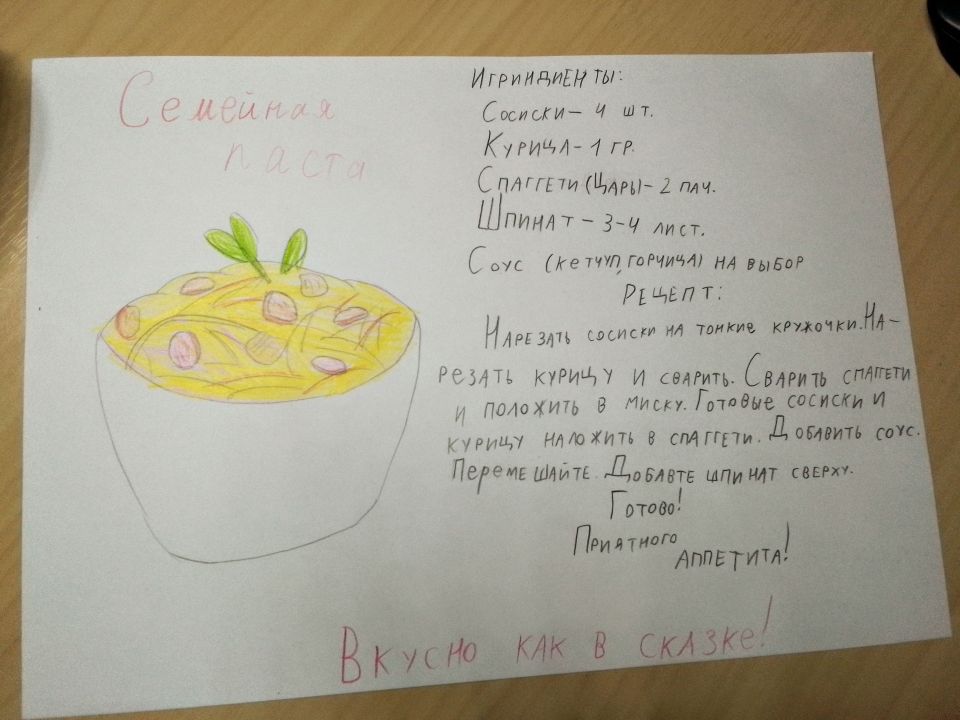 Семейная
паста
Игриндиенты:
Сосиски - 4 шт.
Курица - 1 гр.
Спаггети (Царь) - 2 пач.
Шпинат - 3-4 лист.
Соус (кетчуп, горчица) на выбор
Рецепт:
Нарезать сосиски на тонкие кружочки. На-
резать курицу и сварить. Сварить спаггети
и положить в миску. Готовые сосиски и
курицу наложить в спаггети. Добавить соус.
Перемешайте. Добавте шпинат сверху.
Готово!
Приятного
аппетита!
Вкусно как в сказке!